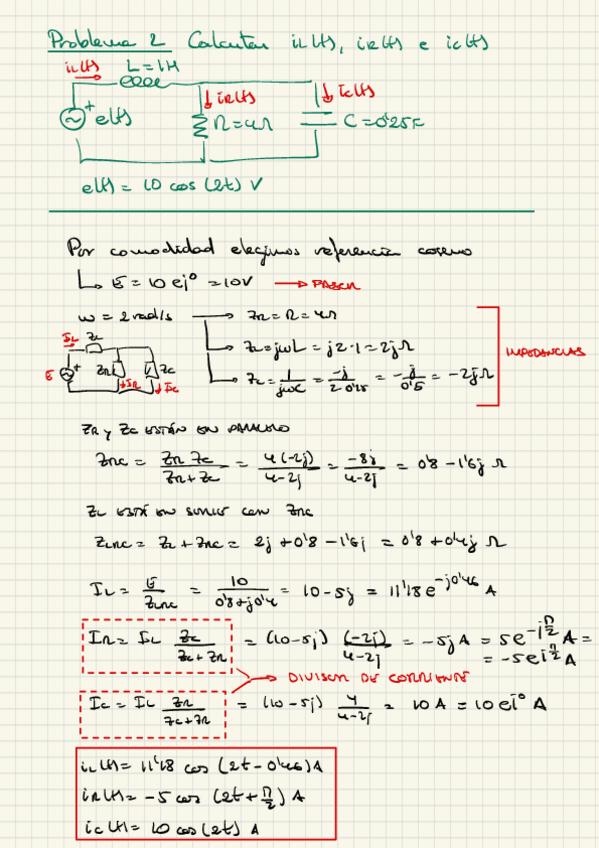 Problema 2 Calcular iL(t), iR(t) e iC(t)
iL(t) L=1H
iR(t) iC(t)
+ e(t) R=4Ω C=0'25F
e(t) = 10 cos (2t) V
Por comodidad elegimos referencia coseno
↳ E = 10 e^j0 = 10V → FASOR
ω = 2 rad/s → ZR = R = 4Ω
IL ZL → ZL = jωL = j2·1 = 2j Ω IMPEDANCIAS
E + ZR IR ZC IC → ZC = 1/jωC = -j/2·0'25 = -j/0'5 = -2j Ω
ZR y ZC ESTÁN EN PARALELO
ZRC = ZR ZC/ZR+ZC = 4(-2j)/4-2j = -8j/4-2j = 0'8 - 1'6j Ω
ZL ESTÁ EN SERIE CON ZRC
ZLRC = ZL + ZRC = 2j + 0'8 - 1'6j = 0'8 + 0'4j Ω
IL = E/ZLRC = 10/0'8+j0'4 = 10-5j = 11'18 e^-j0'46 A
IR = IL ZC/ZC+ZR = (10-5j) (-2j)/4-2j = -5j A = 5e^-jπ/2 A =
= -5e^jπ/2 A
→ DIVISOR DE CORRIENTE
IC = IL ZR/ZC+ZR = (10-5j) 4/4-2j = 10 A = 10 e^j0 A
iL(t) = 11'18 cos (2t - 0'46) A
iR(t) = -5 cos (2t + π/2) A
iC(t) = 10 cos (2t) A